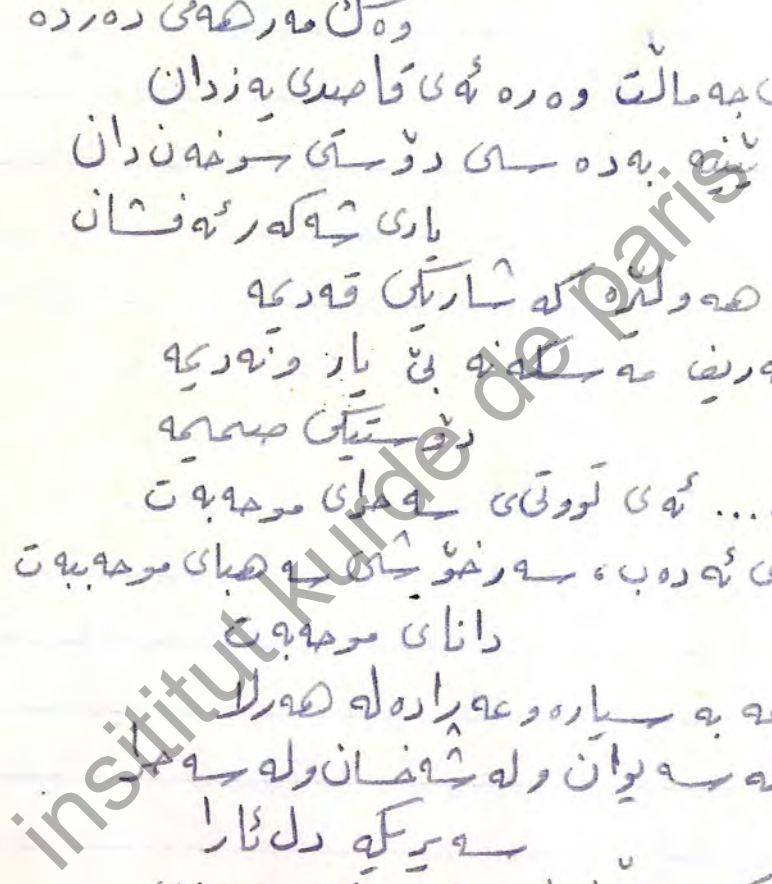 وەک مەرهەمی دەردە
جەماڵت وەرە ئەی قاصدی یەزدان
بەدە سی دۆستی سوخەندان
یاری شەکەر ئەفشان
هەولێرە کە شاریکی قەدیمە
مەسکەنە بێ یار و نەدیمە
دۆستیکی صمیمە
... ئەی تووتی ی سەحرای موحەبەت
ئەدەب، سەرخۆشی سەهبای موحەببەت
دانای موحەبەت
بە سیارە و عەرادە لە هەرلا
سەیوان و لە شەخسان و لە سەحرا
سەیریکە دل ئارا
institut kurde de paris